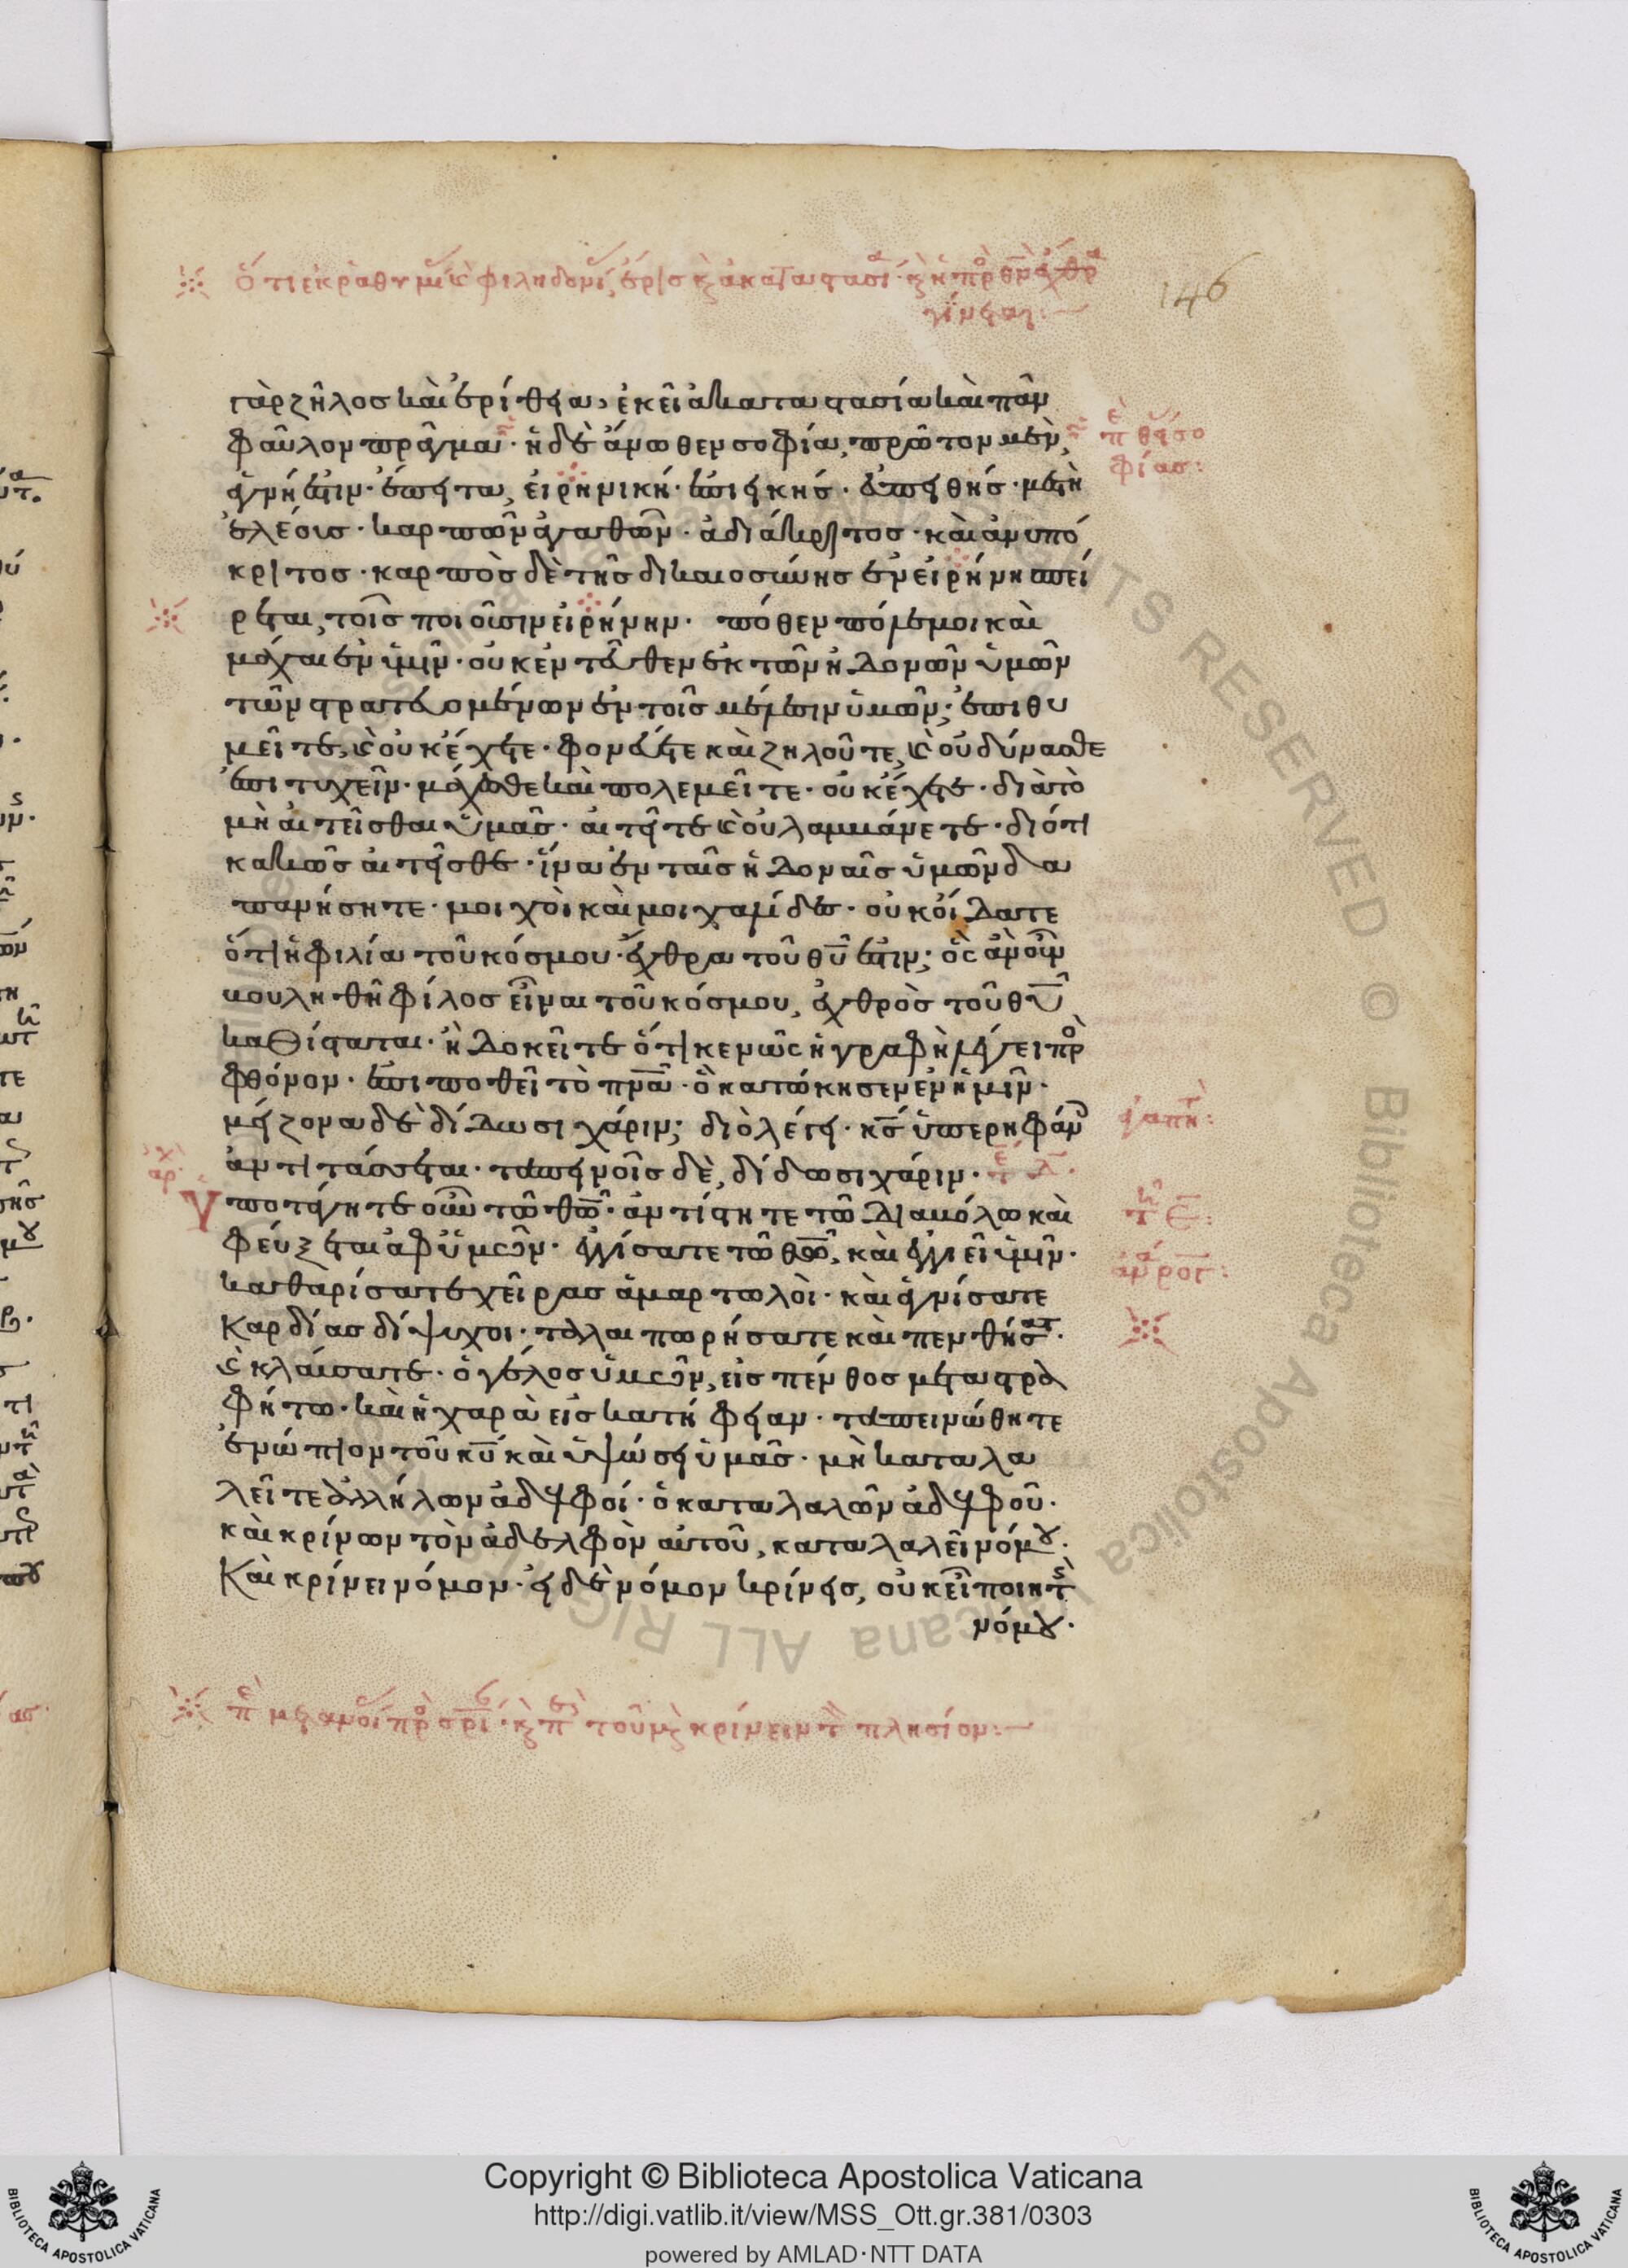 ὅτι ἐκ ραθυμί καὶ φιληδονί, ἔρις καὶ ἀκαταστασί· καὶ ἡ πρὸ θν ἔχθρα
γίνεται:
146
γὰρ ζῆλος καὶ ἐρίθεια, ἐκεῖ ἀκαταστασία καὶ πᾶν
φαῦλον πρᾶγμα· ἡ δὲ ἄνωθεν σοφία, πρῶτον μὲν,
ἁγνή ἐστιν· ἔπειτα, εἰρηνική· ἐπιεικής· εὐπειθής· μεστὴ
ἐλέους· καρπῶν ἀγαθῶν· ἀδιάκριτος· καὶ ἀνυπό
κριτος· καρπὸς δὲ τῆς δικαιοσύνης ἐν εἰρήνη σπεί
ρεται, τοῖς ποιοῦσιν εἰρήνην· πόθεν πόλεμοι καὶ
μάχαι ἐν ὑμῖν· οὐκ ἐντεῦθεν ἐκ τῶν ἡδονῶν ὑμῶν
τῶν στρατευομένων ἐν τοῖς μέλεσιν ὑμῶν; ἐπιθυ
μεῖτε, καὶ οὐκ ἔχετε· φονεύετε καὶ ζηλοῦτε, καὶ οὐ δύνασθε
ἐπιτυχεῖν· μάχεσθε καὶ πολεμεῖτε· οὐκ ἔχετε· διὰ τὸ
μὴ αἰτεῖσθαι ὑμᾶς· αἰτεῖτε καὶ οὐ λαμβάνετε· διότι
κακῶς αἰτεῖσθε· ἵνα ἐν ταῖς ἡδοναῖς ὑμῶν δα
πανήσητε· μοιχοὶ καὶ μοιχαλίδες· οὐκ οἴδατε
ὅτι ἡ φιλία τοῦ κόσμου· ἔχθρα τοῦ θυ ἐστιν; ὃς ἂν οὖν
βουληθῆ φίλος εἶναι τοῦ κόσμου, ἐχθρὸς τοῦ θυ
καθίσταται· ἢ δοκεῖτε ὅτι κενῶς ἡ γραφὴ λέγει πρὸ
φθόνον· ἐπιποθεῖ τὸ πνα· ὃ κατώκησεν ἐν ἡμῖν·
μείζονα δὲ δίδωσι χάριν; διὸ λέγει· κς ὑπερηφάν
ἀντιτάσσεται· ταπεινοῖς δὲ, δίδωσι χάριν·
Υποτάγητε οὖν τῶ θω· ἀντίστητε τῶ διαβόλω καὶ
φεύξεται ἀφ ὑμῶν· ἐγγίσατε τῶ θω, καὶ ἐγγιεῖ ὑμῖν·
καθαρίσατε χεῖρας ἁμαρτωλοὶ· καὶ ἁγνίσατε
καρδίας δίψυχοι· ταλαιπωρήσατε καὶ πενθήσατ·
καὶ κλαύσατε· ὁ γέλος ὑμῶν, εἰς πένθος μεταστρα
φήτω· καὶ ἡ χαρὰ εἰς κατήφειαν· ταπεινώθητε
ἐνώπιον τοῦ κυ καὶ ὑψώσει ὑμᾶς· μὴ καταλα
λεῖτε ἀλλήλων ἀδελφοί· ὁ καταλαλῶν ἀδελφοῦ·
καὶ κρίνων τὸν ἀδελφὸν αὐτοῦ, καταλαλεῖ νόμου·
Καὶ κρίνει νόμον· εἰ δὲ νόμον κρίνεις, οὐκ εἶ ποιητὴς
νόμου·
πε θείας σο
φίας:
μετανοί πρὸ σρί· καὶ πε τοῦ μὴ κρίνειν τ πλησίον:
Copyright © Biblioteca Apostolica Vaticana
http://digi.vatlib.it/view/MSS_Ott.gr.381/0303
powered by AMLAD·NTT DATA
BIBLIOTECA APOSTOLICA VATICANA
BIBLIOTECA APOSTOLICA VATICANA